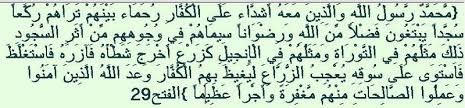 {مُّحَمَّدٌ رَّسُولُ اللَّهِ وَالَّذِينَ مَعَهُ أَشِدَّاء عَلَى الْكُفَّارِ رُحَمَاء بَيْنَهُمْ تَرَاهُمْ رُكَّعاً
سُجَّداً يَبْتَغُونَ فَضْلاً مِّنَ اللَّهِ وَرِضْوَاناً سِيمَاهُمْ فِي وُجُوهِهِم مِّنْ أَثَرِ السُّجُودِ
ذَلِكَ مَثَلُهُمْ فِي التَّوْرَاةِ وَمَثَلُهُمْ فِي الْإِنجِيلِ كَزَرْعٍ أَخْرَجَ شَطْأَهُ فَآزَرَهُ فَاسْتَغْلَظَ
فَاسْتَوَى عَلَى سُوقِهِ يُعْجِبُ الزُّرَّاعَ لِيَغِيظَ بِهِمُ الْكُفَّارَ وَعَدَ اللَّهُ الَّذِينَ آمَنُوا
وَعَمِلُوا الصَّالِحَاتِ مِنْهُم مَّغْفِرَةً وَأَجْراً عَظِيماً }الفتح29